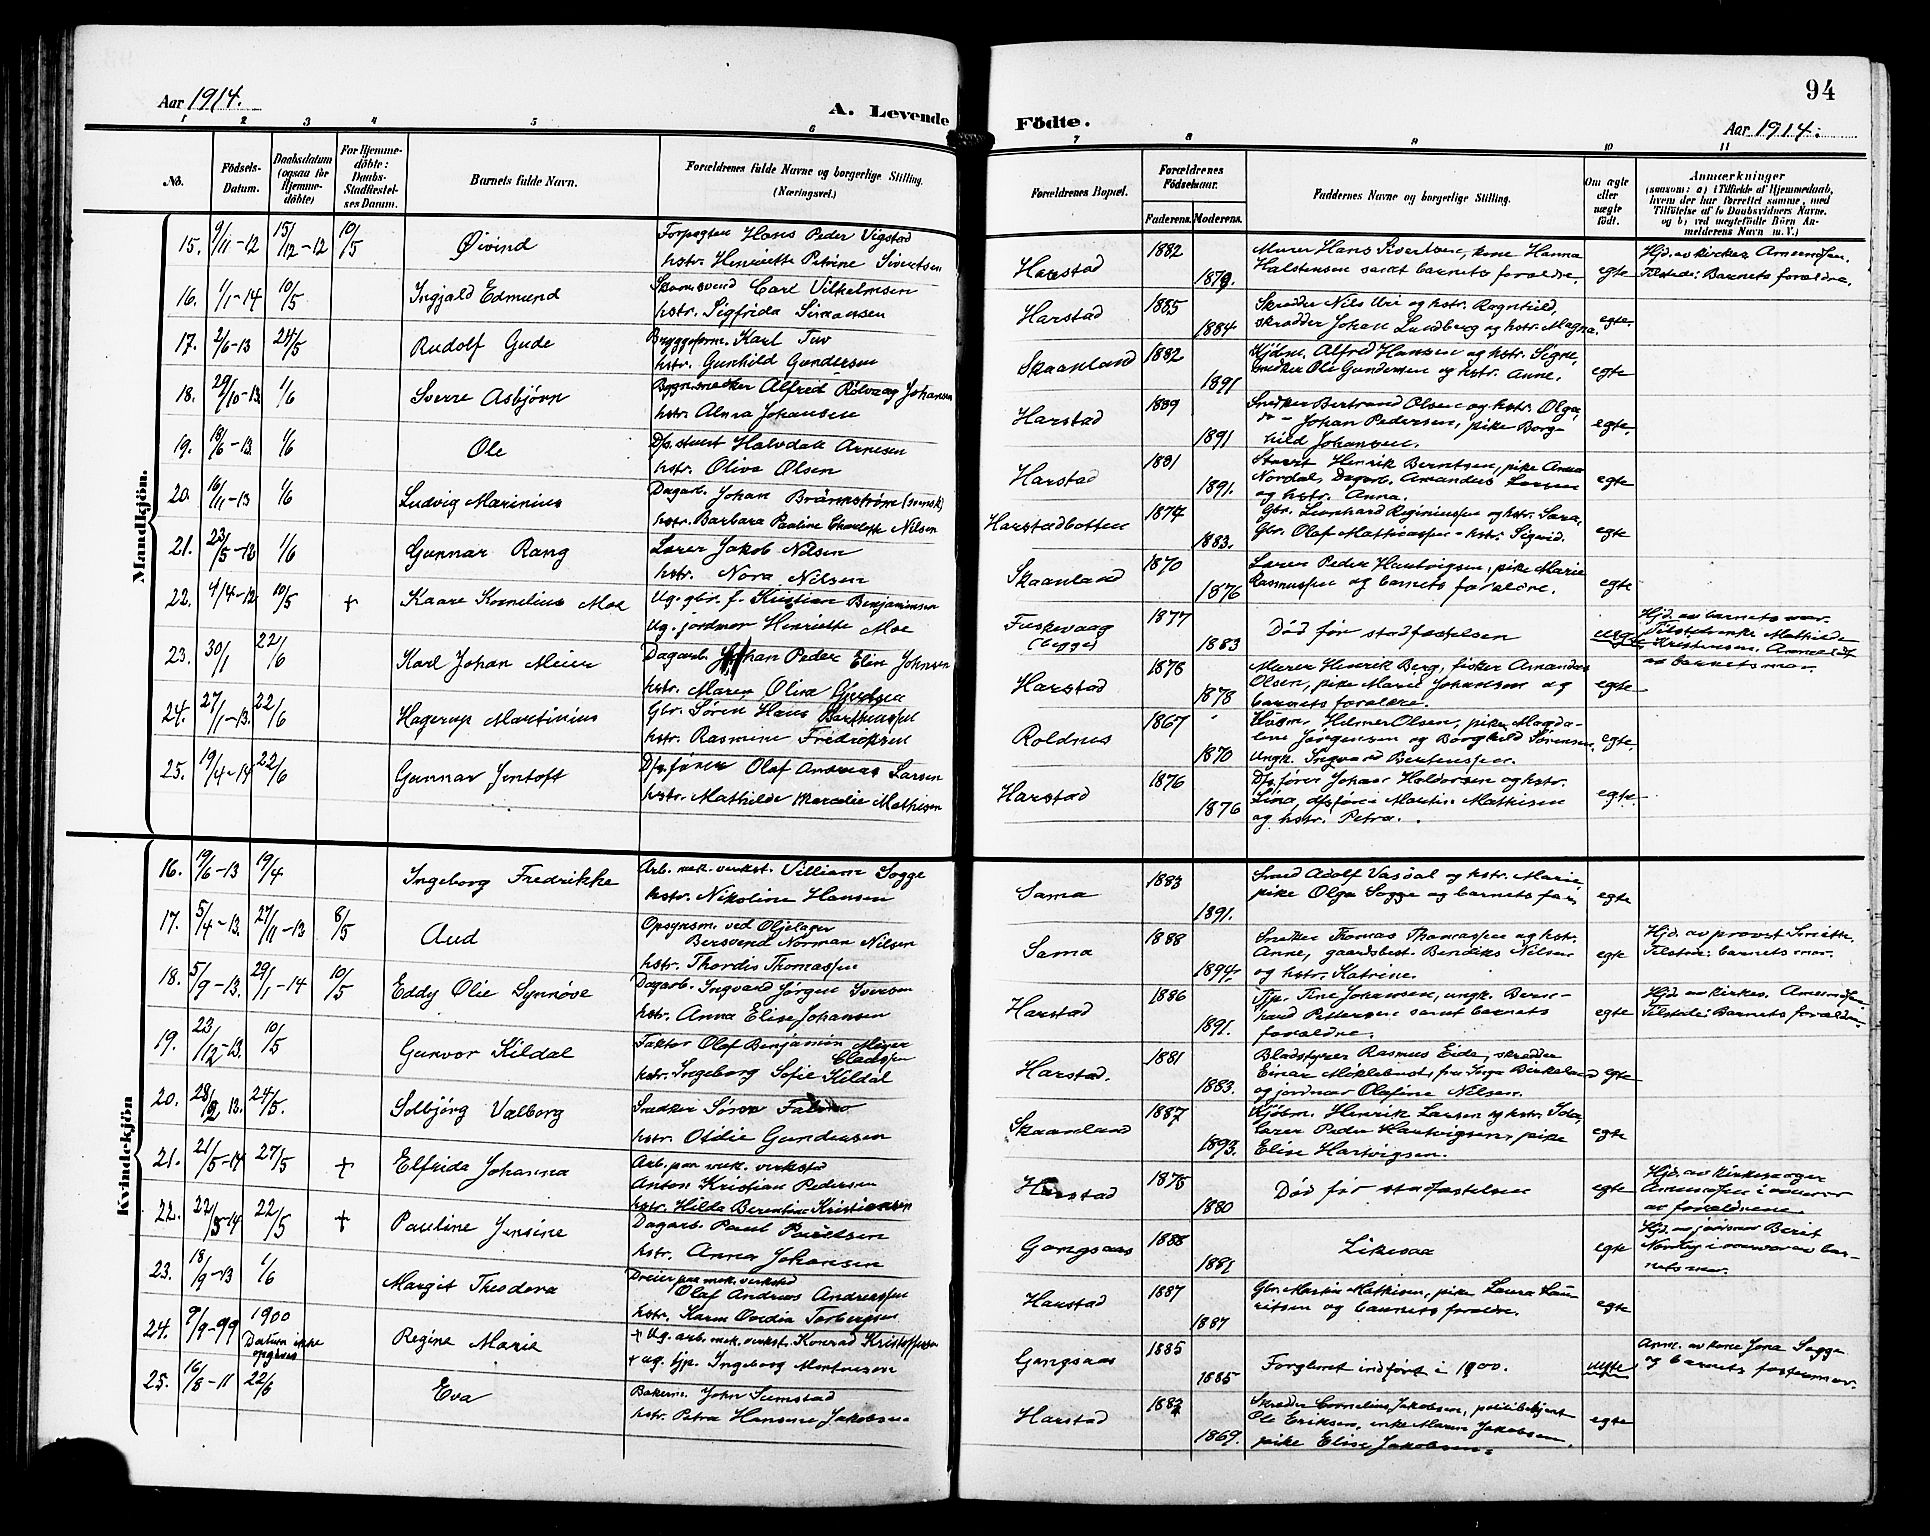 94
Aar 1914.
A. Levende Födte.
Aar 1914.
1 2 3 4 5 6 7 8 9 10 11
No.
Födsels-Datum.
Daabsdatum (ogsaa for Hjemme-döbte)
For Hjemme-döbte: Daabs-Stadfæstel-ses Datum.
Barnets fulde Navn.
Forældrenes fulde Navne og borgerlige Stilling. (Næringsvei.)
Forældrenes Bopæl.
Forældrenes Födselsaar.
Faderens. Moderens.
Faddernes Navne og borgerlige Stilling.
Om ægte eller uægte födt.
Anmærkninger
(saasom: a) i Tilfælde af Hjemmedaab,
hvem der har forrettet samme, med
Tilföielse af to Daabsvidners Navne.
og b) ved uægtefödte Börn An-
melderens Navn m. V.)
Mandkjön.
15. 9/11-12 15/12-12 10/5 Øivind Forpagter Hans Peder Vigstad
hstr. Henriette Petrine Sivertsen
Harstad 1882 1879. Murer Hans Sivertsen, kone Hanna
Halstensen samt barnets forældre. egte
Hjd. av kirkes. Amundsen.
Tilstede: Barnets forældre.
16. 1/1-14 10/5 Ingjald Edmund Carl Vilhelmsen
hstr. Sigfrida Simonsen
Harstad 1885 1884 Skrædder Nils Uri og hstr. Ragnhild,
skrædder Johan Lundberg og hstr. Magna. egte.
17. 2/6-13 24/5 Rudolf Gude Bryggeform. Karl Tuv
hstr. Gunhild Gundersen
Skaanland 1882 1891 Kjöbm. Alfred Hansen og hstr. Signe,
snedker Ole Gundersen og hstr. Anne. egte
18. 29/10-13. 1/6 Sverre Asbjörn Bygn.snedker Alfred Rölvaag Johansen
hstr. Alma Johansen
Harstad 1889 1891 Snedker Bertrand Olsen og hstr. Olga,
do - Johan Pedersen, pike Borg-
hild Johansen. egte.
19. 18/6-13. 1/6 Ole Dfs. stuert Halvdan Arnesen
hstr. Oliva Olsen
Harstad 1891. Stuert Henrik Berntsen, pike Anna
Nordal, Dagarb. Amandus Larsen
og hstr. Anna. egte
20. 16/11-13 1/6 Ludvig Marinius Dagarb. Johan Brännström (svensk)
hstr. Barbara Pauline Charlotte Nilsen
Harstadbotten 1874 1883. Gbr. Leonhard Reginiussen og hstr. Sara,
Gbr. Olaf Mathiassen - hstr. Sigrid. egte
21. 23/5-12 1/6 Gunnar Rang Lærer Jakob Nilsen
hstr. Nora Nilsen
Skaanland 1870 1876 Lærer Peder Hartvigsen, pike Marie
Rasmussen og barnets forældre. egte
22. 4/4-12 10/5 + Kaare Kornelius Moe Ug. gbr. f. Kristian Benjaminsen
Ug. jordmor Henriette Moe
Fuskevaag
(begge) 1877 1883 Död för stadfæstelsen uegte
Hjd. av barnets mor.
Tilst. Mathilde
Kristensen. Anmeldt
av barnets mor.
23. 30/1 22/6 Karl Johan Meier Dagarb. Johan Peder Elise Johnsen
hstr. Maren Olina
Harstad 1878 1878 Murer Henrik Berg, fisker Amandus
Olsen, pike Marie Johansen og
barnets forældre. egte
24. 27/1-13. 22/6 Hagerup Martinius Gbr. Sören Hans Barthiussen
hstr. Rasmine Fredriksen
Roldnes 1867 1870 Helmer Olsen, pike Magda-
lene Jörgensen og Borghild Sörensen,
Ungk. Ingvard egte.
25. 19/4-14 22/6 Gunnar Jentoft Dfs. förer Olaf Andreas Larsen
hstr. Mathilde Marcelie Mathisen
Harstad 1876 1876 Dfs. förer Johan Haldorsen og hstr.
Lina, dfs. förer Martin Mathisen
og hstr. Petra. egte
Kvindekjön
16. 19/6-13 19/4 Ingeborg Fredrikke Arb. mek. verkst. Villiam Sogge
hstr. Nikoline Hansen
Sama 1883 1891. Smed Adolf Vasdal og hstr. Marie,
pike Olga Sogge og barnets far. egte
17. 5/4-13. 27/11-13 8/5 Aud Opsynsm. ved Oljelager
Bersvend Norman Nilsen
hstr. Thordis Thomassen
Sama 1888 1894. Snedker Tomas Thomassen og hstr.
Anne, gaardsbest. Bendiks Nilsen
og hstr. Katrine. egte
Hjd. av provst
Tilstede: barnets mor.
18. 5/9-13. 29/1-14 10/5 Eddy Olie Synnöve Dagarb. Ingvard Jörgen Iversen
hstr. Anna Elise Johansen
Harstad 1886 1891. Tjp. Tine Johansen, ungk. Bern-
hard Pettersen samt barnets
forældre. egte
Hjd. av kirkes. Amundsen
Tilstede: Barnets forældre.
19. 23/12-13. 10/5 Gunvor Kildal Faktor Olaf Benjamin Meyer
hstr. Ingeborg Sofie Kildal
Harstad. 1881 1883. Bladstyrer Rasmus Eide, skrædder
Einar Miklebust, fru Inga Birkeland
og jordmor Olafine Nilsen. egte
20. 13. 24/5. Solbjörg Valborg Snedker Sören
hstr. Otilie Gundersen
Skaanland 1887 1893. Kjöbm. Henrik Larsen og hstr. Ida,
Lærer Peder Hartvigsen, pike
Elise Hartvigsen. egte
21. 21/5-14 27/5 + Elfrida Johanna Arb. paa mek. verkstad
Anton Kristian Pedersen
hstr. Hilda Berentine Kristiansen
Harstad 1878 1880 Död för stadfæstelsen egte
Hjd. av kirkesanger
Amundsen i nærvær
av forældrene.
22. 22/5-14 22/5 + Pauline Jensine Dagarb. Paul Paulsen
hstr. Anna Johansen
Gangsaas 1888 1881 Likesaa egte
Hjd. av jordmor Berit
Nordby i nærvær av bar-
nets mor.
23. 18/9-13 1/6 Margit Theodora Dreier paa mek. verkstad
Olaf Andreas Andreassen
hstr. Karen Ovedia Torbergsen
Harstad 1887 1887 Gbr. Martin Mathisen, pike Laura Lau-
ritsen og barnets forældre. egte
24. 9/9-99 1900
Datum ikke
opgivet Regine Marie + Ug. arb. mek. verkst. Konrad Kristoffersen
+ ug. tjp. Ingeborg Mortensen
Gangsaas 1885 1885 Forglemt indfört i 1900.
Anm. av kone Jona Sogge
og barnets fostermor.
25. 16/8-11 22/6 Eva Bakerm. John Sumstad
hstr. Petra Hansine Jakobsen
Harstad 1869. Skrædder Cornelius Jakobsen, politibetjent
Ole Eriksen, enke Maren Jakobsen,
pike Elise Jakobsen. egte